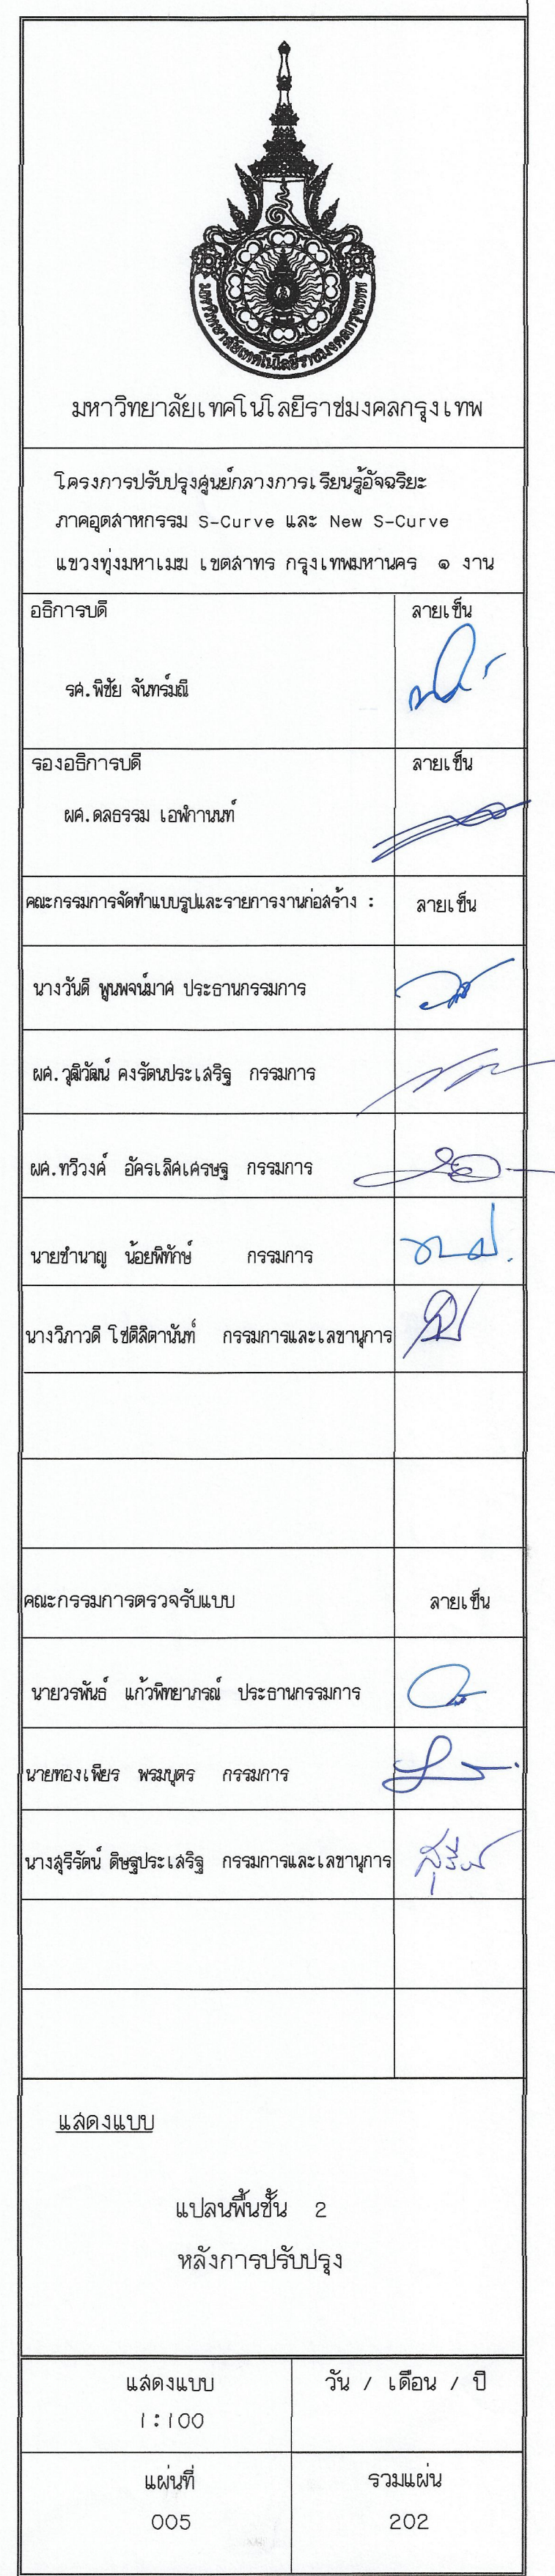 มหาวิทยาลัยเทคโนโลยีราชมงคลกรุงเทพ
มหาวิทยาลัยเทคโนโลยีราชมงคลกรุงเทพ
โครงการปรับปรุงศูนย์กลางการเรียนรู้อัจฉริยะ
ภาคอุตสาหกรรม S-Curve และ New S-Curve
แขวงทุ่งมหาเมฆ เขตสาทร กรุงเทพมหานคร ๑ งาน
อธิการบดี ลายเซ็น
รศ.พิชัย จันทร์มณี
รองอธิการบดี ลายเซ็น
ผศ.ดลธรรม เอฬกานนท์
คณะกรรมการจัดทำแบบรูปและรายการงานก่อสร้าง : ลายเซ็น
นางวันดี พูนพจน์มาศ ประธานกรรมการ
ผศ.วุฒิวัฒน์ คงรัตนประเสริฐ กรรมการ
ผศ.ทวีวงค์ อัครเลิศเศรษฐ กรรมการ
นายชำนาญ น้อยพิทักษ์ กรรมการ
นางวิภาวดี โชติลิตานันท์ กรรมการและเลขานุการ
คณะกรรมการตรวจรับแบบ ลายเซ็น
นายวรพันธ์ แก้วพิทยาภรณ์ ประธานกรรมการ
นายทองเพียร พรมบุตร กรรมการ
นางสุรีรัตน์ ดิษฐประเสริฐ กรรมการและเลขานุการ
สุรีรั
แสดงแบบ
แปลนพื้นชั้น 2
หลังการปรับปรุง
แสดงแบบ วัน / เดือน / ปี
1:100
แผ่นที่ รวมแผ่น
005 202